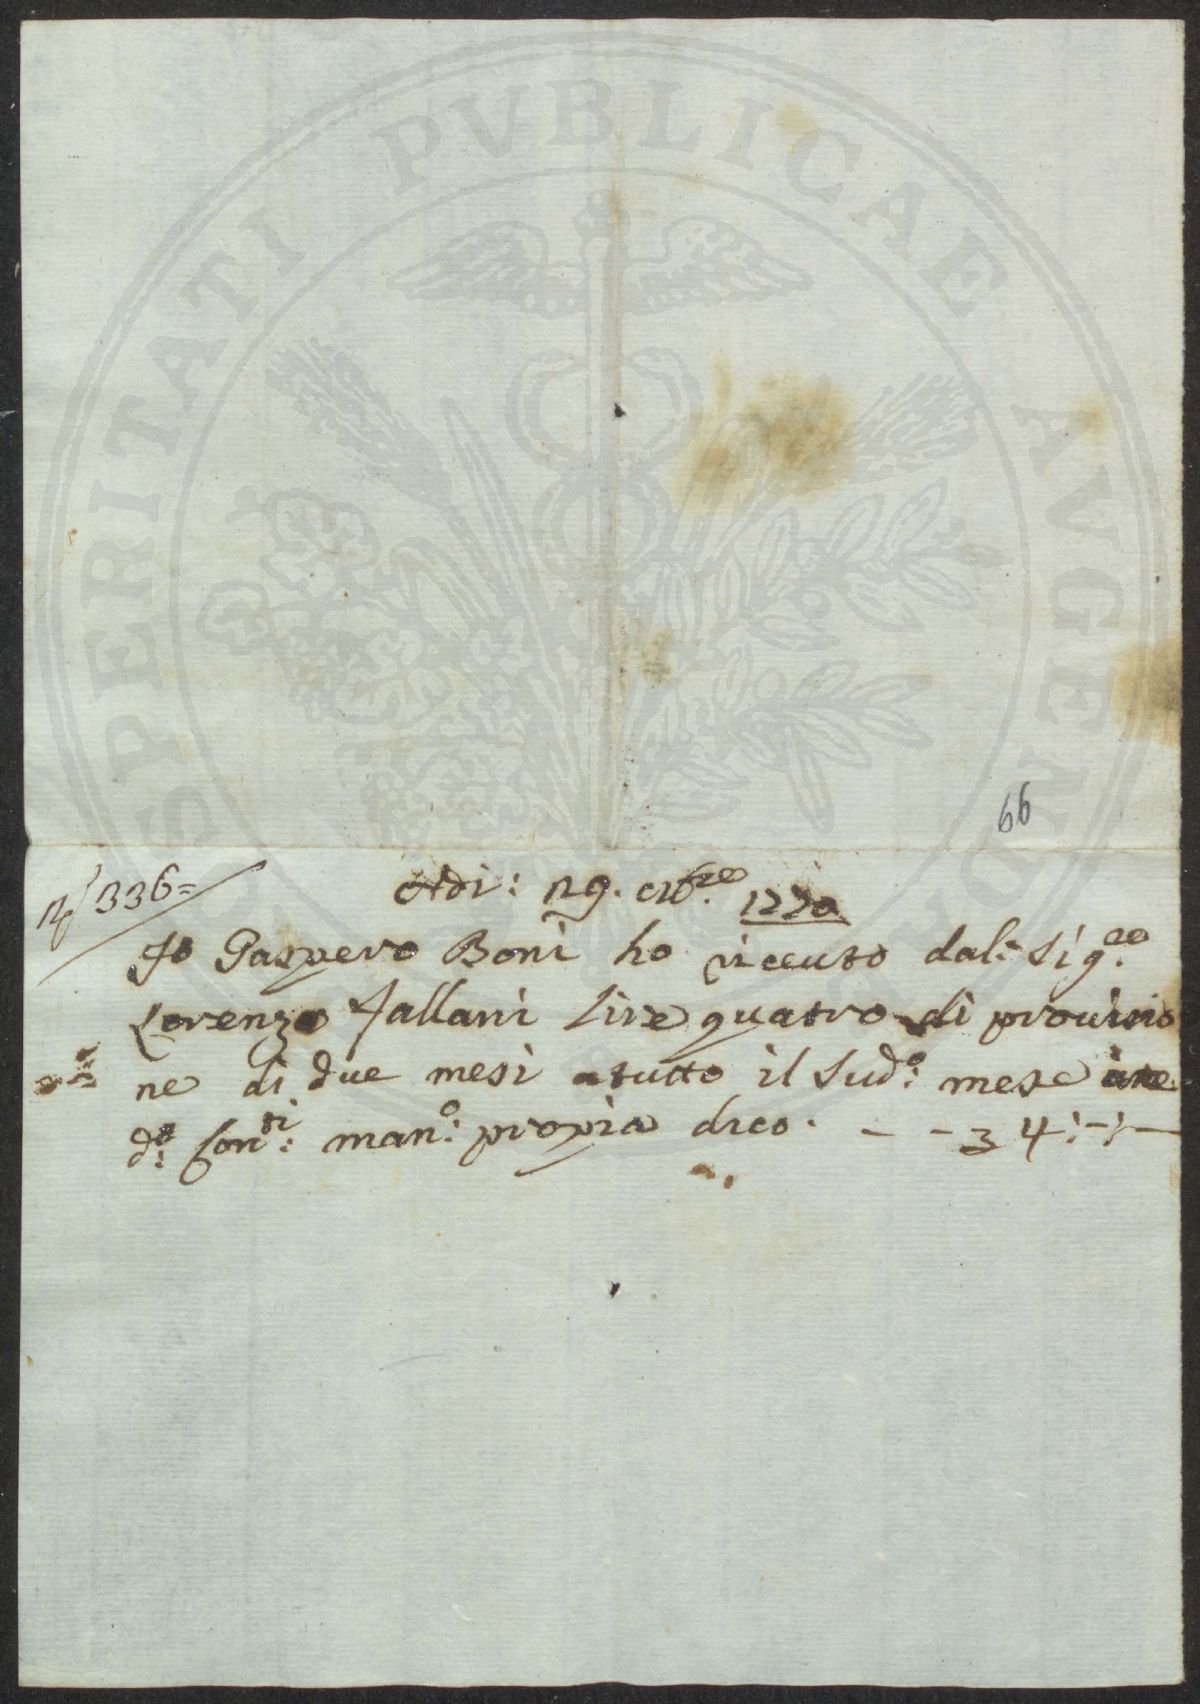 PERITATI PVBLICAE AVGEND
66
336=
Adi: 29. 1770
Io Gaspero Boni ho riceuto dal: Sig.re
Lorenzo Fallani lire quatro di prouisio
ne di due mesi atutto il Sud.o: mese
d.o: Con.ti: man.o: propria dico. - - 3 4:-:-